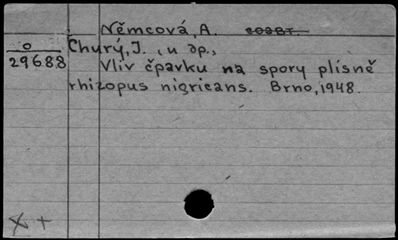 Němcová, A.
Churý, J., и др.,
о
29688
Vliv čpavku na spory plísně
rhizopus nigricans. Brno, 1948.